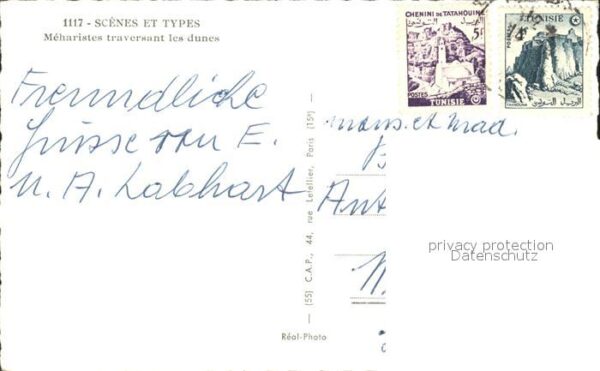 1117 - SCÈNES ET TYPES
Méharistes traversant les dunes
Freundliche
Grüsse von E.
u. A. Labhart
CHENINI DE TATAHOUINE
5F
POSTES
TUNISIE
TUNISIE
mons. et mad.
B
Ant
[55] C.A.P., 44, rue Letellier, Paris (15e)
Réal-Photo
privacy protection
Datenschutz